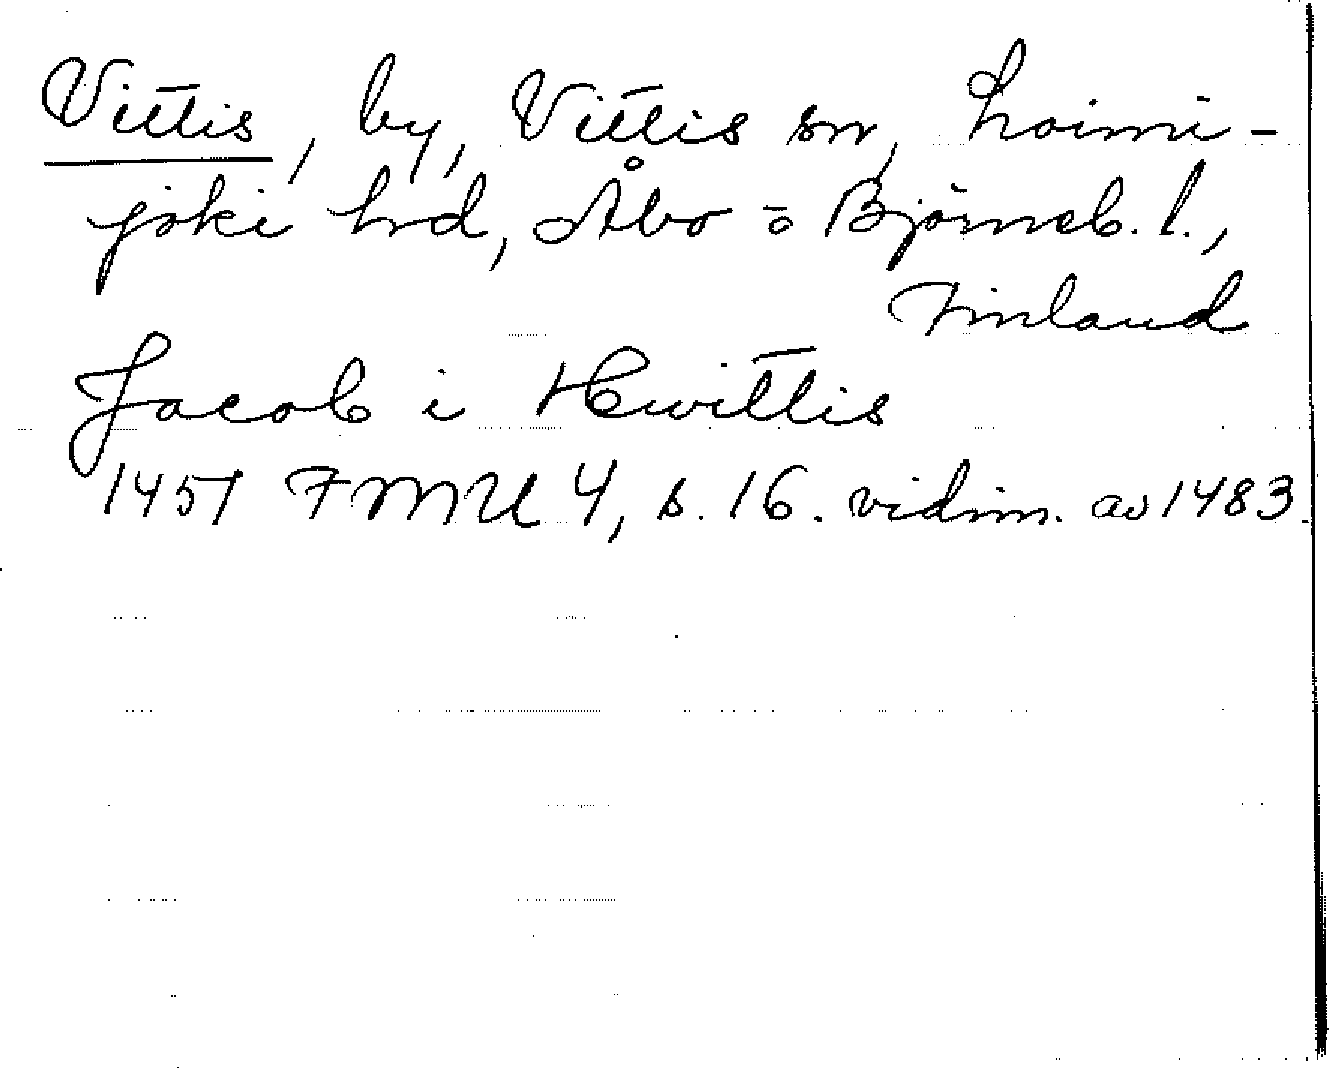 Vittis, by, Vittis sn, Loimi-
joki hd, Åbo o Björneb. l.,
Finland
Jacob i Hwittis
1451 FMU 4, s. 16. vidim. av 1483.